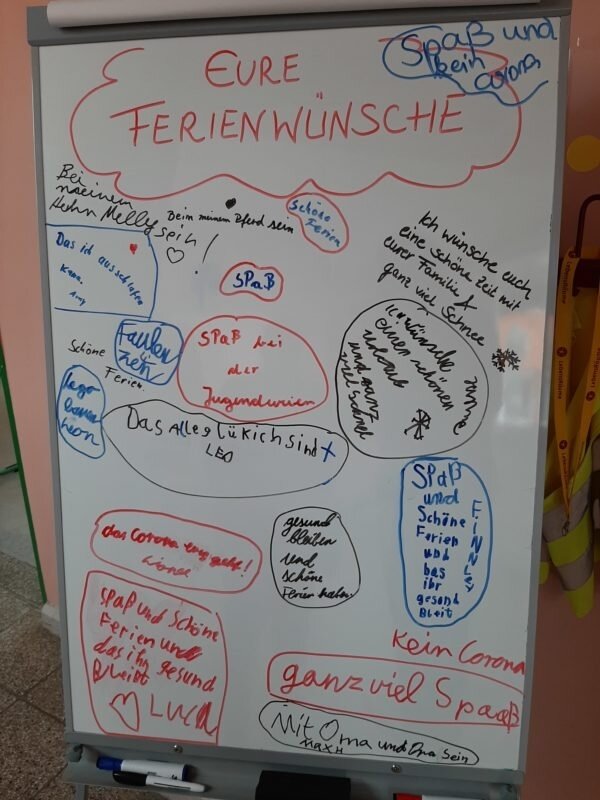 EURE
FERIENWÜNSCHE
Spaß und
kein
corona
Bei
meinem
Huhn Melly
sein!
Beim meinem Pferd sein
Schöne
Ferien
Ich wünsche euch
eine schöne Zeit mit
eurer Familie
ganz viel Schnee
Das ich ausschlafen
Kann.
Amy
SPaß
Faulen
zen
SPaß bei
der
Schöne
Ferien.
Ich wünsche
einen schönen
Urlaub
und ganz
viel
lego
bauen
Das Alle glükich sind
LEO
SPaß
und
Schöne
Ferien
und
bas
ihr
gesond
Bleit
FiNNley
das Corona weg geht!
gesund
bleiben
und
schöne
Ferien haben.
Spaß und Schöne
Ferien und
das ihr gesund
Bleibt
LUCA
Kein Corona
ganz viel Spaaß
Mit Oma und Opa sein
MAXH